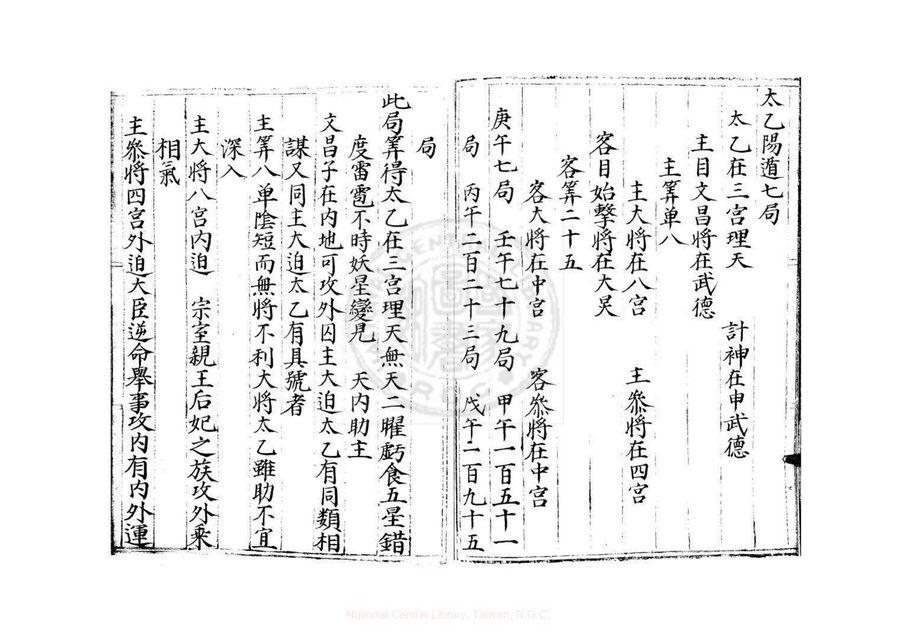 太乙陽遁七局
太乙在三宮理天　計神在申武德
主目文昌將在武德
主筭單八
主大將在八宮　主叅將在四宮
客目始擊將在大炅
客筭二十五
客大將在中宮　客叅將在中宮
庚午七局　壬午七十九局　甲午一百五十一
局　丙午二百二十三局　戊午二百九十五
局
此局筭得太乙在三宮理天無天二曜虧食五星錯
度雷雹不時妖星變見　天內助主
文昌子在內地可攻外囚主大迫太乙有同類相
謀又同主大迫太乙有具號者
主筭八单陰短而無將不利大將太乙雖助不宜
深入
主大將八宮內迫　宗室親王后妃之族攻外乘
相氣
主叅將四宮外迫大臣逆命舉事攻內有內外運
National Central Library, Taiwan, R.O.C.